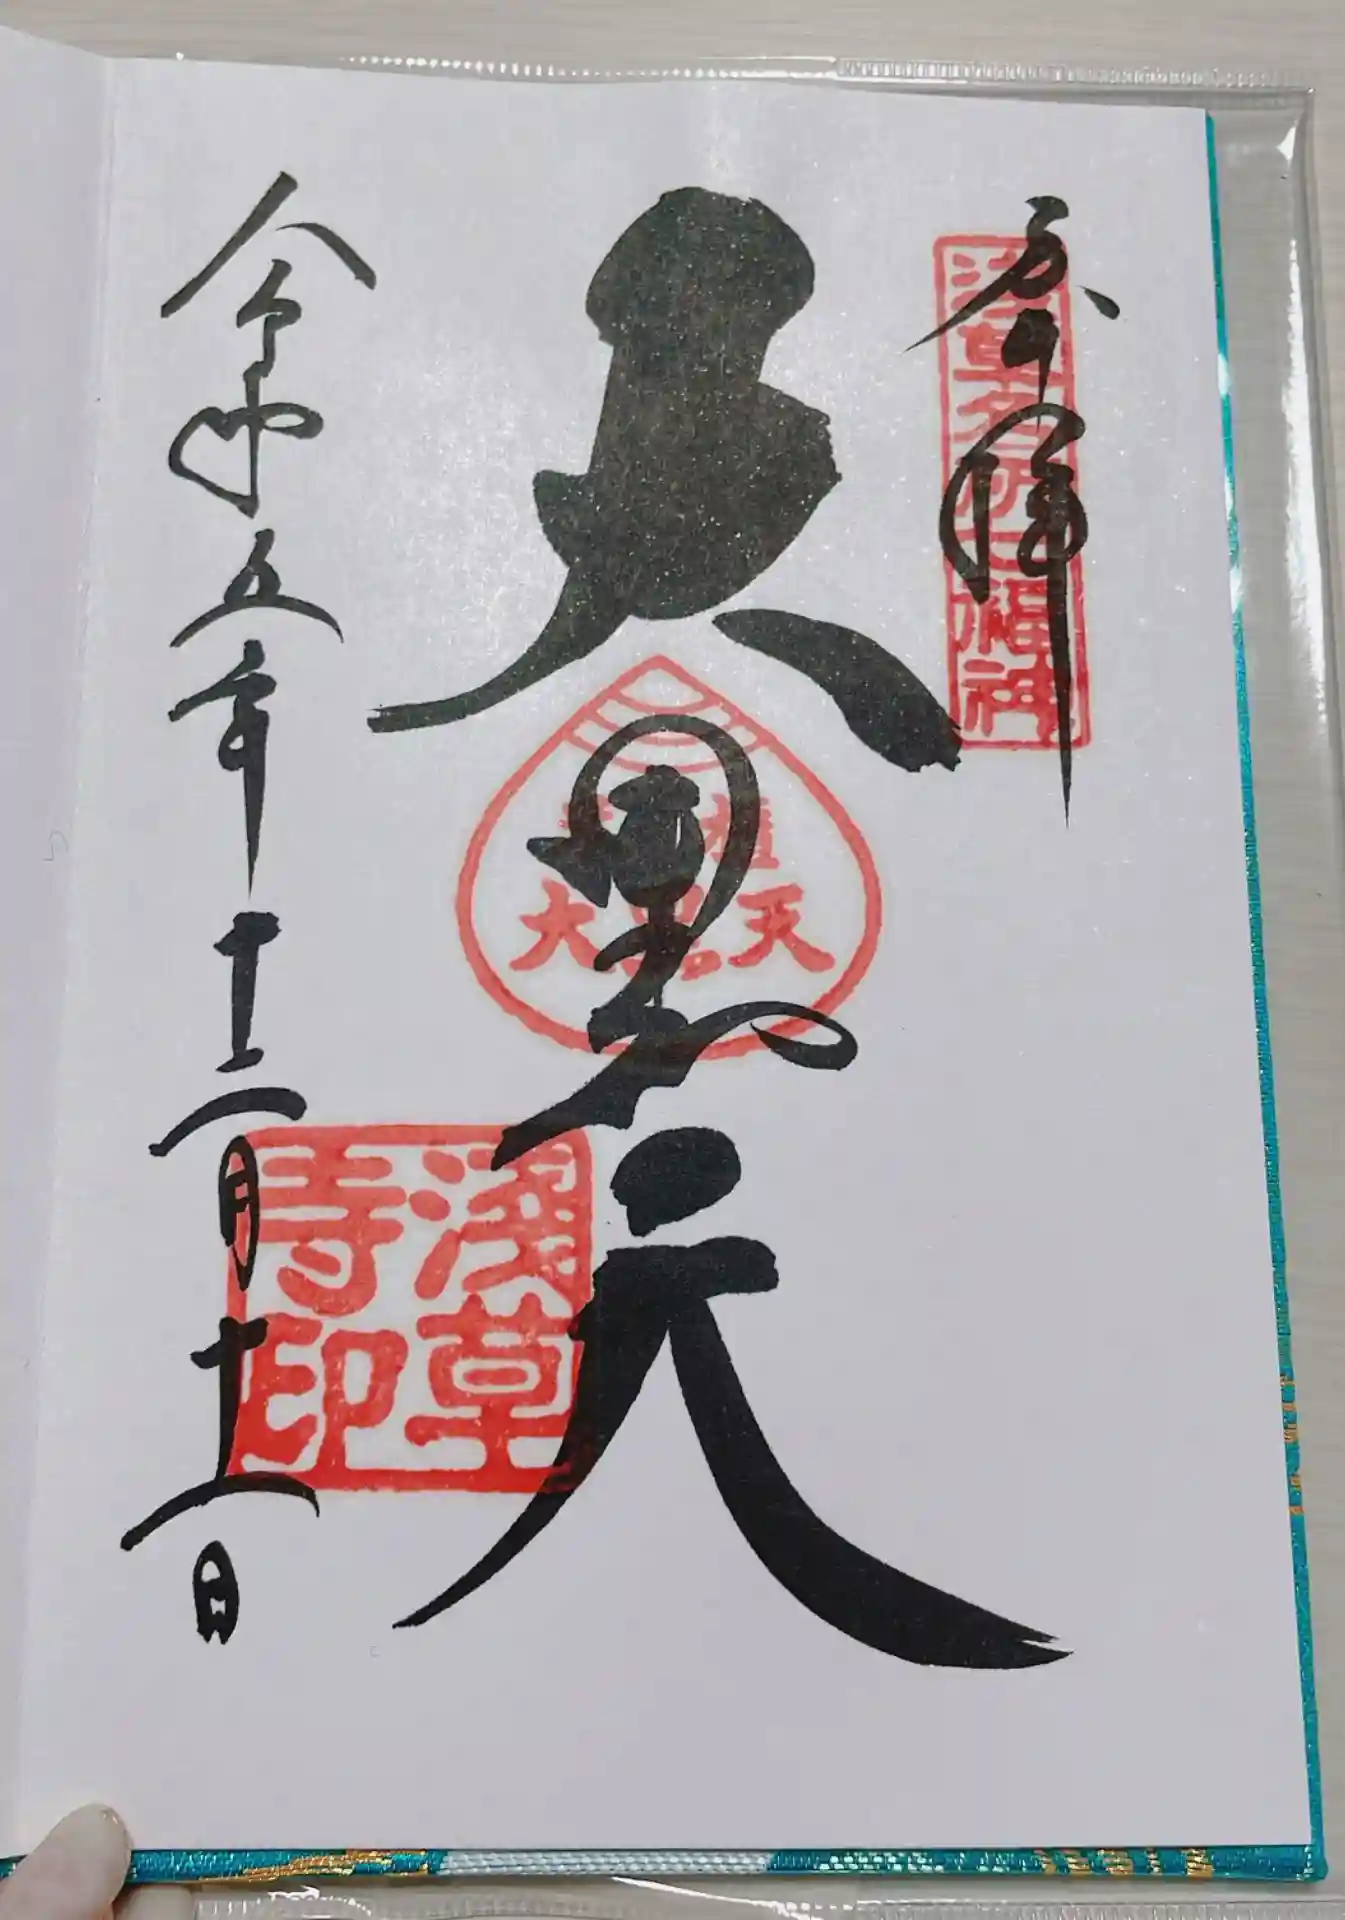 奉拝
浅草名所七福神
大黒天
大黒天
浅草
寺印
令和五年十二月十二日